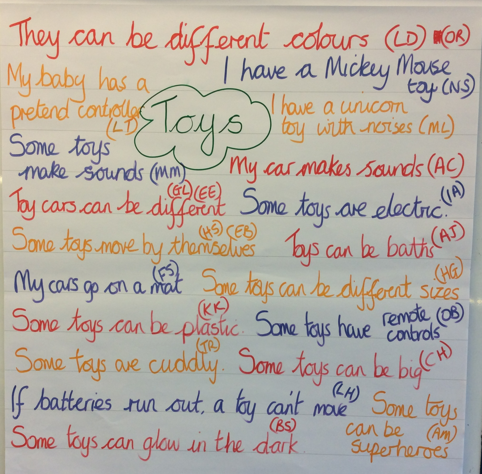 They can be different colours (LD) (OR)
My baby has a
pretend controller
(LT)
I have a Mickey Mouse
toy (NS)
Toys
I have a unicorn
toy with noises (ML)
Some toys
make sounds (MM)
My car makes sounds (AC)
Toy cars can be different (GL) (EE)
Some toys are electric. (IA)
Some toys move by themselves (HS) (EB)
Toys can be baths (AJ)
My cars go on a mat (FS)
Some toys can be different sizes (HG)
Some toys can be plastic. (KK)
Some toys have remote controls (OB)
Some toys are cuddly. (JR)
Some toys can be big (CH)
If batteries run out, a toy can't move (LH)
Some toys
can be
superheroes (Am)
Some toys can glow in the dark (BS)